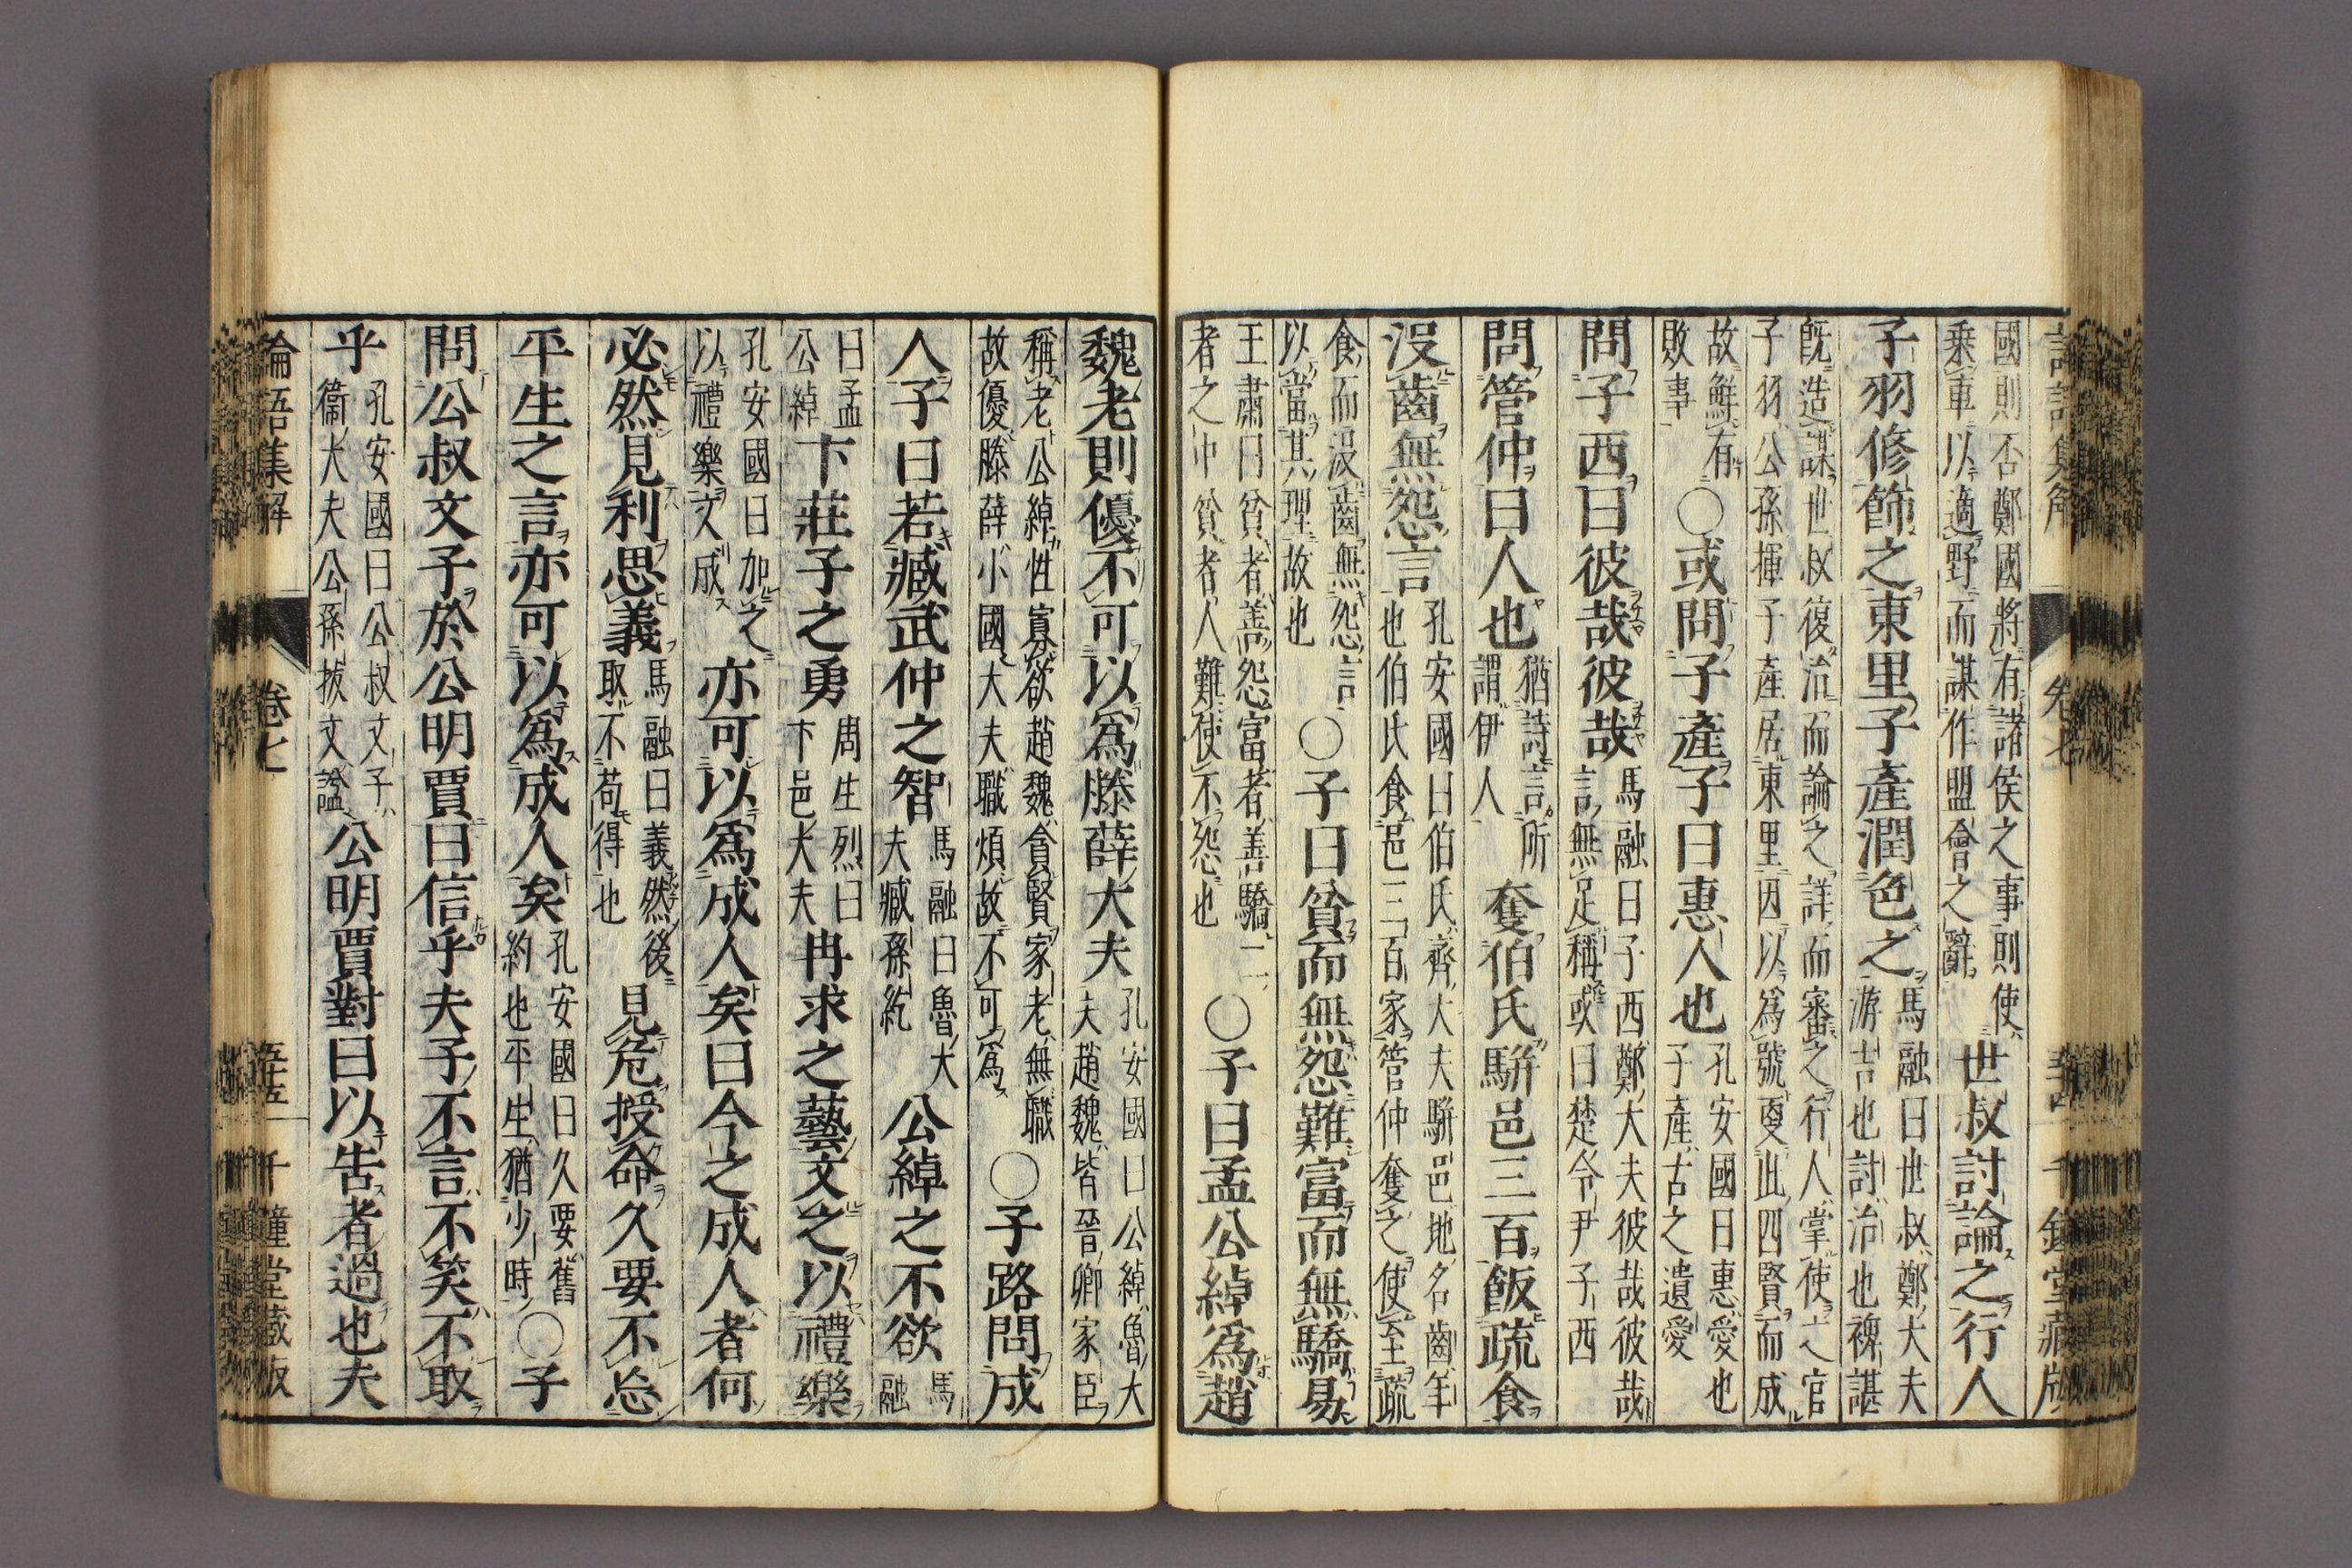 國則否鄭國將有諸侯之事則使
乘車以適野而謀作盟會之辭
世叔討論之行人
子羽修飾之東里子產潤色之
馬融曰世叔鄭大夫
游吉也討治也裨諶
既造謀世叔復治而論之詳而審之行人掌使之官
子羽公孫揮子產居東里因以為號更此四賢而成
故鮮有
敗事
○或問子產子曰惠人也
孔安國曰惠愛也
子產古之遺愛
問子西曰彼哉彼哉
馬融曰子西鄭大夫彼哉彼哉
言無足稱或曰楚令尹子西
問管仲曰人也
猶詩言所
謂伊人
奪伯氏駢邑三百飯疏食
沒齒無怨言
孔安國曰伯氏齊大夫駢邑地名齒年
也伯氏食邑三百家管仲奪之使至疏
食而沒齒無怨言
以當其理故也
○子曰貧而無怨難富而無驕易
王肅曰貧者善怨富者善驕二
者之中貧者人難使不怨也
○子曰孟公綽為趙
魏老則優不可以為滕薛大夫
孔安國曰公綽魯大
夫趙魏皆晉卿家臣
稱老公綽性寡欲趙魏貪賢家老無職
故優滕薛小國大夫職煩故不可為
○子路問成
人子曰若臧武仲之智
馬融曰魯大
夫臧孫紇
公綽之不欲
馬融
曰孟
公綽
卞莊子之勇
周生烈曰
卞邑大夫
冉求之藝文之以禮樂
孔安國曰加之
以禮樂文成
亦可以為成人矣曰今之成人者何
必然見利思義
馬融曰義然後
取不苟得也
見危授命久要不忘
平生之言亦可以為成人矣
孔安國曰久要舊
約也平生猶少時
○子
問公叔文子於公明賈曰信乎夫子不言不笑不取
乎
孔安國曰公叔文子
衞大夫公孫拔文謚
公明賈對曰以告者過也夫
論語集解
卷七
千鍾堂藏版